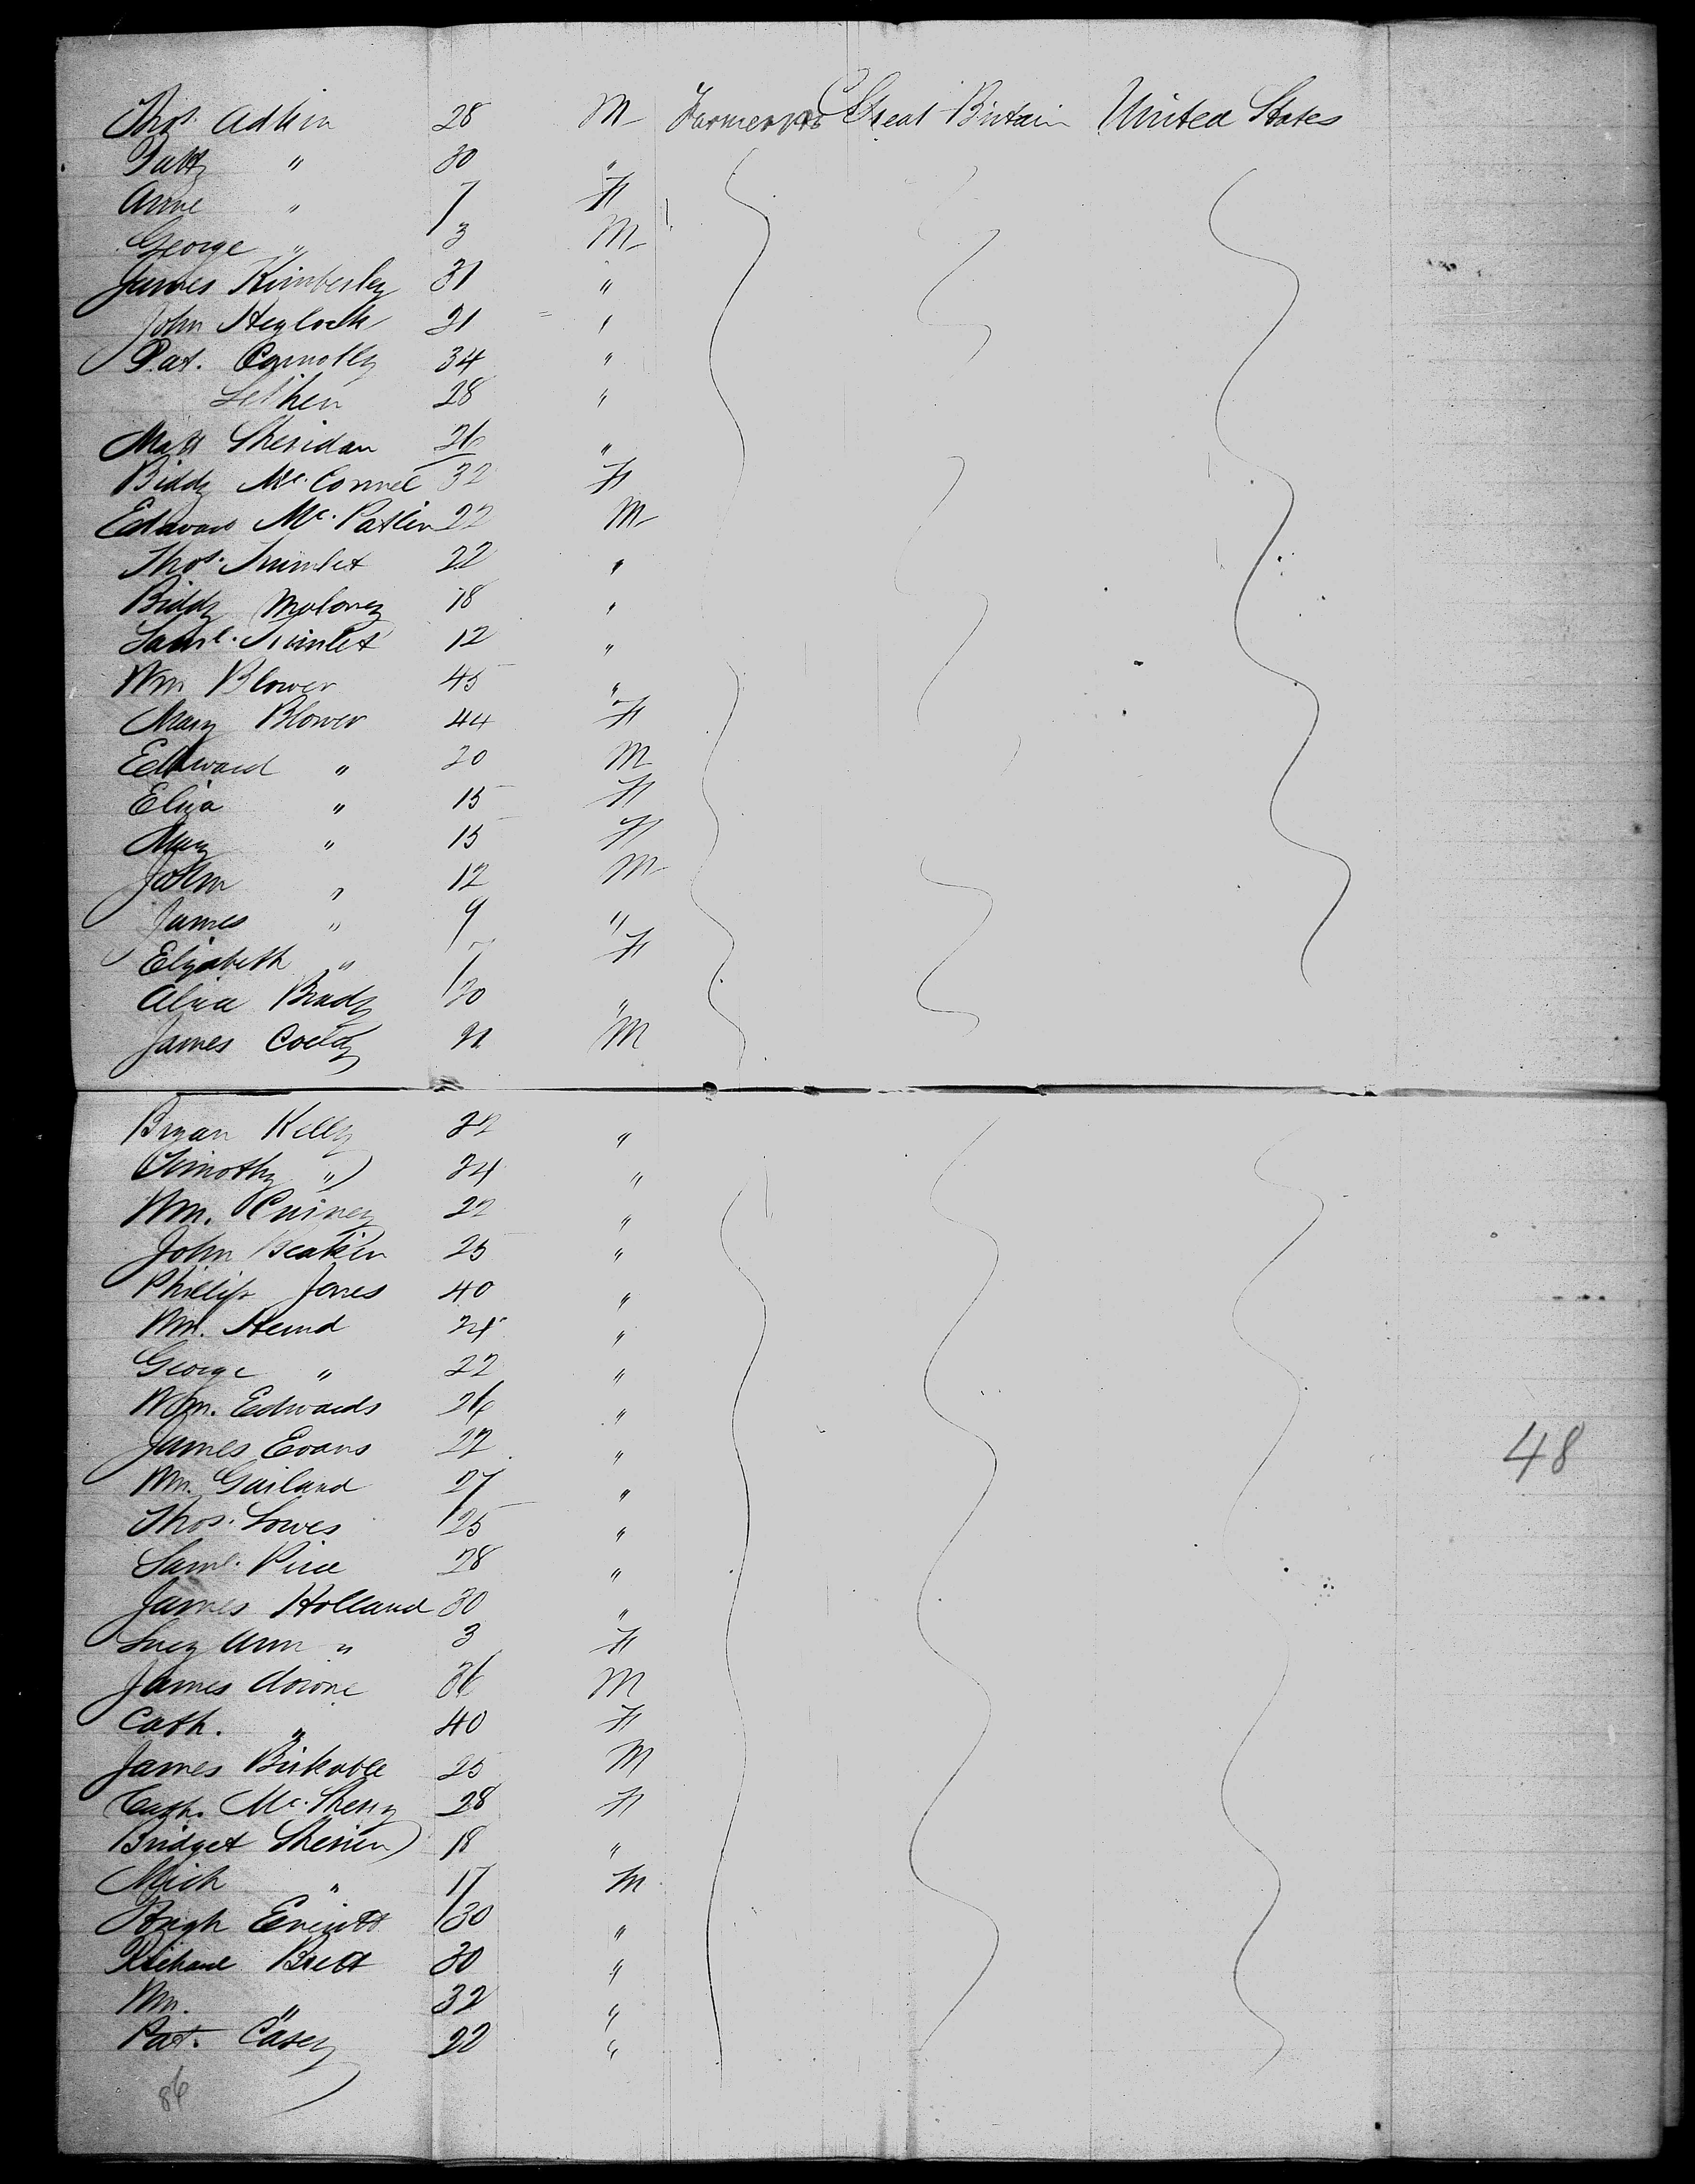 Thos. Adkin 28 M Farmers Great Britain United States
Patty " 30 "
Anne " 7 F
George " 3 M
James Kimberley 31 "
John Heylock 21 "
Pat. Connolly 34 "
28 "
Matt Sheridan 26 "
Biddy Mc.Connel 32 F
Edward Mc. 22 M
Thos. Trimlet 22 "
Biddy Moloney 18 "
Saml. Trimlet 12 "
Wm Blower 45 "
Mary Blower 44 F
Edward " 20 M
Eliza " 15 F
Mary " 15 F
John " 12 M
James " 9 "
Elizabeth " 7 F
Brady 20 "
James 21 M
Bryan Kelly 22 "
Timothy " 24 "
Wm. 22 "
John 25 "
Phillip Jones 40 "
Wm. 24 "
George " 22 "
Wm. Edwards 26 "
James Evans 22 "
48
Wm. Garland 27 "
Thos. Lowes 25 "
Saml. Price 28 "
James Holland 30 "
Lucy Ann " 3 F
James 36 M
Cath. " 40 F
James 25 M
Cath. Mc.Sherry 28 F
Bridget 18 "
Mich " 17 M
Hugh 30 "
Richard Brett 30 "
Wm. " 32 "
Pat. Casey 22 "
86